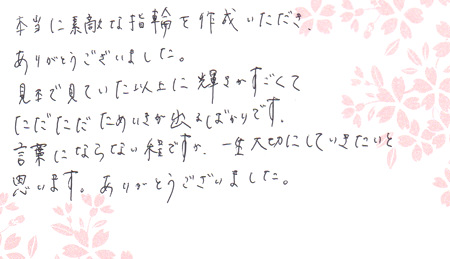 本当に素敵な指輪を作成いただき、
ありがとうございました。
見本で見ていた以上に輝きがすごくて
ただただ ためいきが出るばかりです。
言葉にならない程ですが、一生大切にしていきたいと
思います。ありがとうございました。